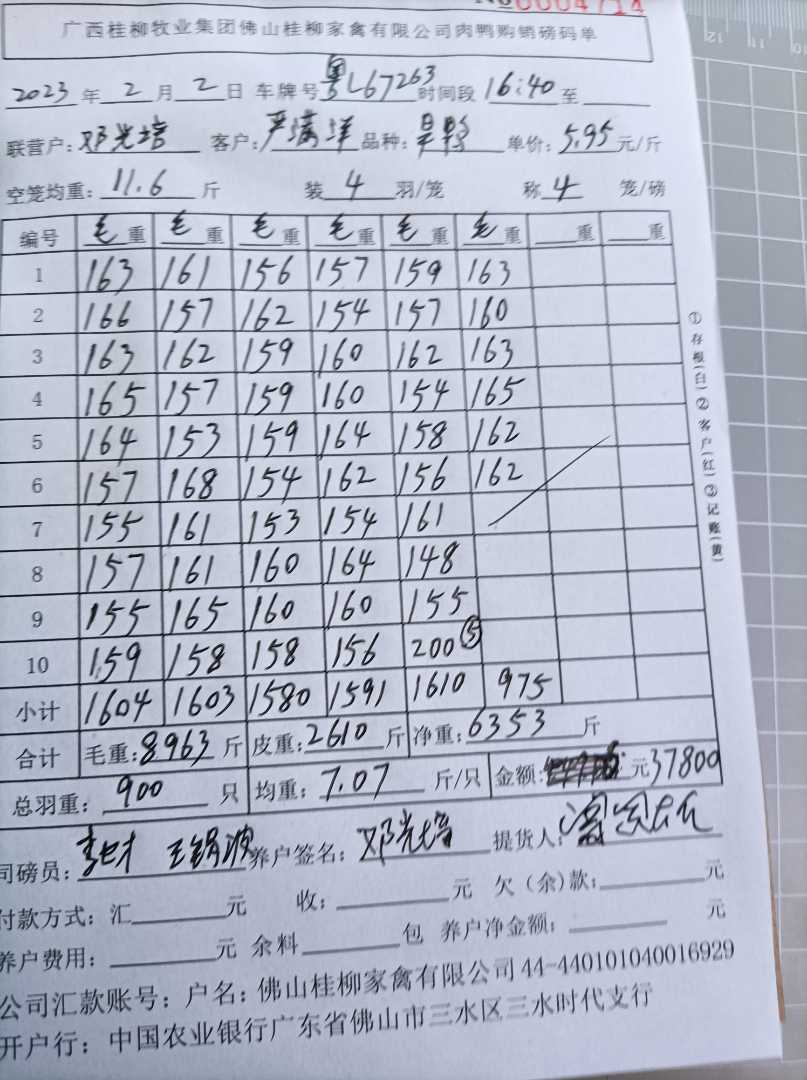 No0004714
广西桂柳牧业集团佛山桂柳家禽有限公司肉鸭购销磅码单
2023年2月2日 车牌号粤L67263 时间段16:40至
联营户:邓光培 客户: 品种: 单价:5.95元/斤
空笼均重:11.6斤 装4羽/笼 称4笼/磅
编号 毛重 毛重 毛重 毛重 毛重 毛重 重 重
1 163 161 156 157 159 163
2 166 157 162 154 157 160
3 163 162 159 160 162 163
4 165 157 159 160 154 165
5 164 153 159 164 158 162
6 157 168 154 162 156 162
7 155 161 153 154 161
8 157 161 160 164 148
9 155 165 160 160 155
10 159 158 158 156 200⑤
小计 1604 1603 1580 1591 1610 975
合计 毛重:8963斤 皮重:2610斤 净重:6353斤
总羽重:900只 均重:7.07斤/只 金额:元37800
司磅员: 养户签名:邓光培 提货人:
付款方式:汇元 收:元 欠(余)款:元
养户费用:元 余料包 养户净金额:元
公司汇款账号:户名:佛山桂柳家禽有限公司 44-440101040016929
开户行:中国农业银行广东省佛山市三水区三水时代支行
①存根(白)②客户(红)③记账(黄)
12 11 10